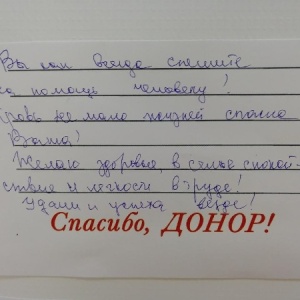 Вы всегда спешите
на помощь человеку!
Кровь не мало жизней спасла
Ваша!
Желаю здоровья, в семье спокой-
ствие и легкости в груде!
Удачи и успеха везде!
Спасибо, ДОНОР!